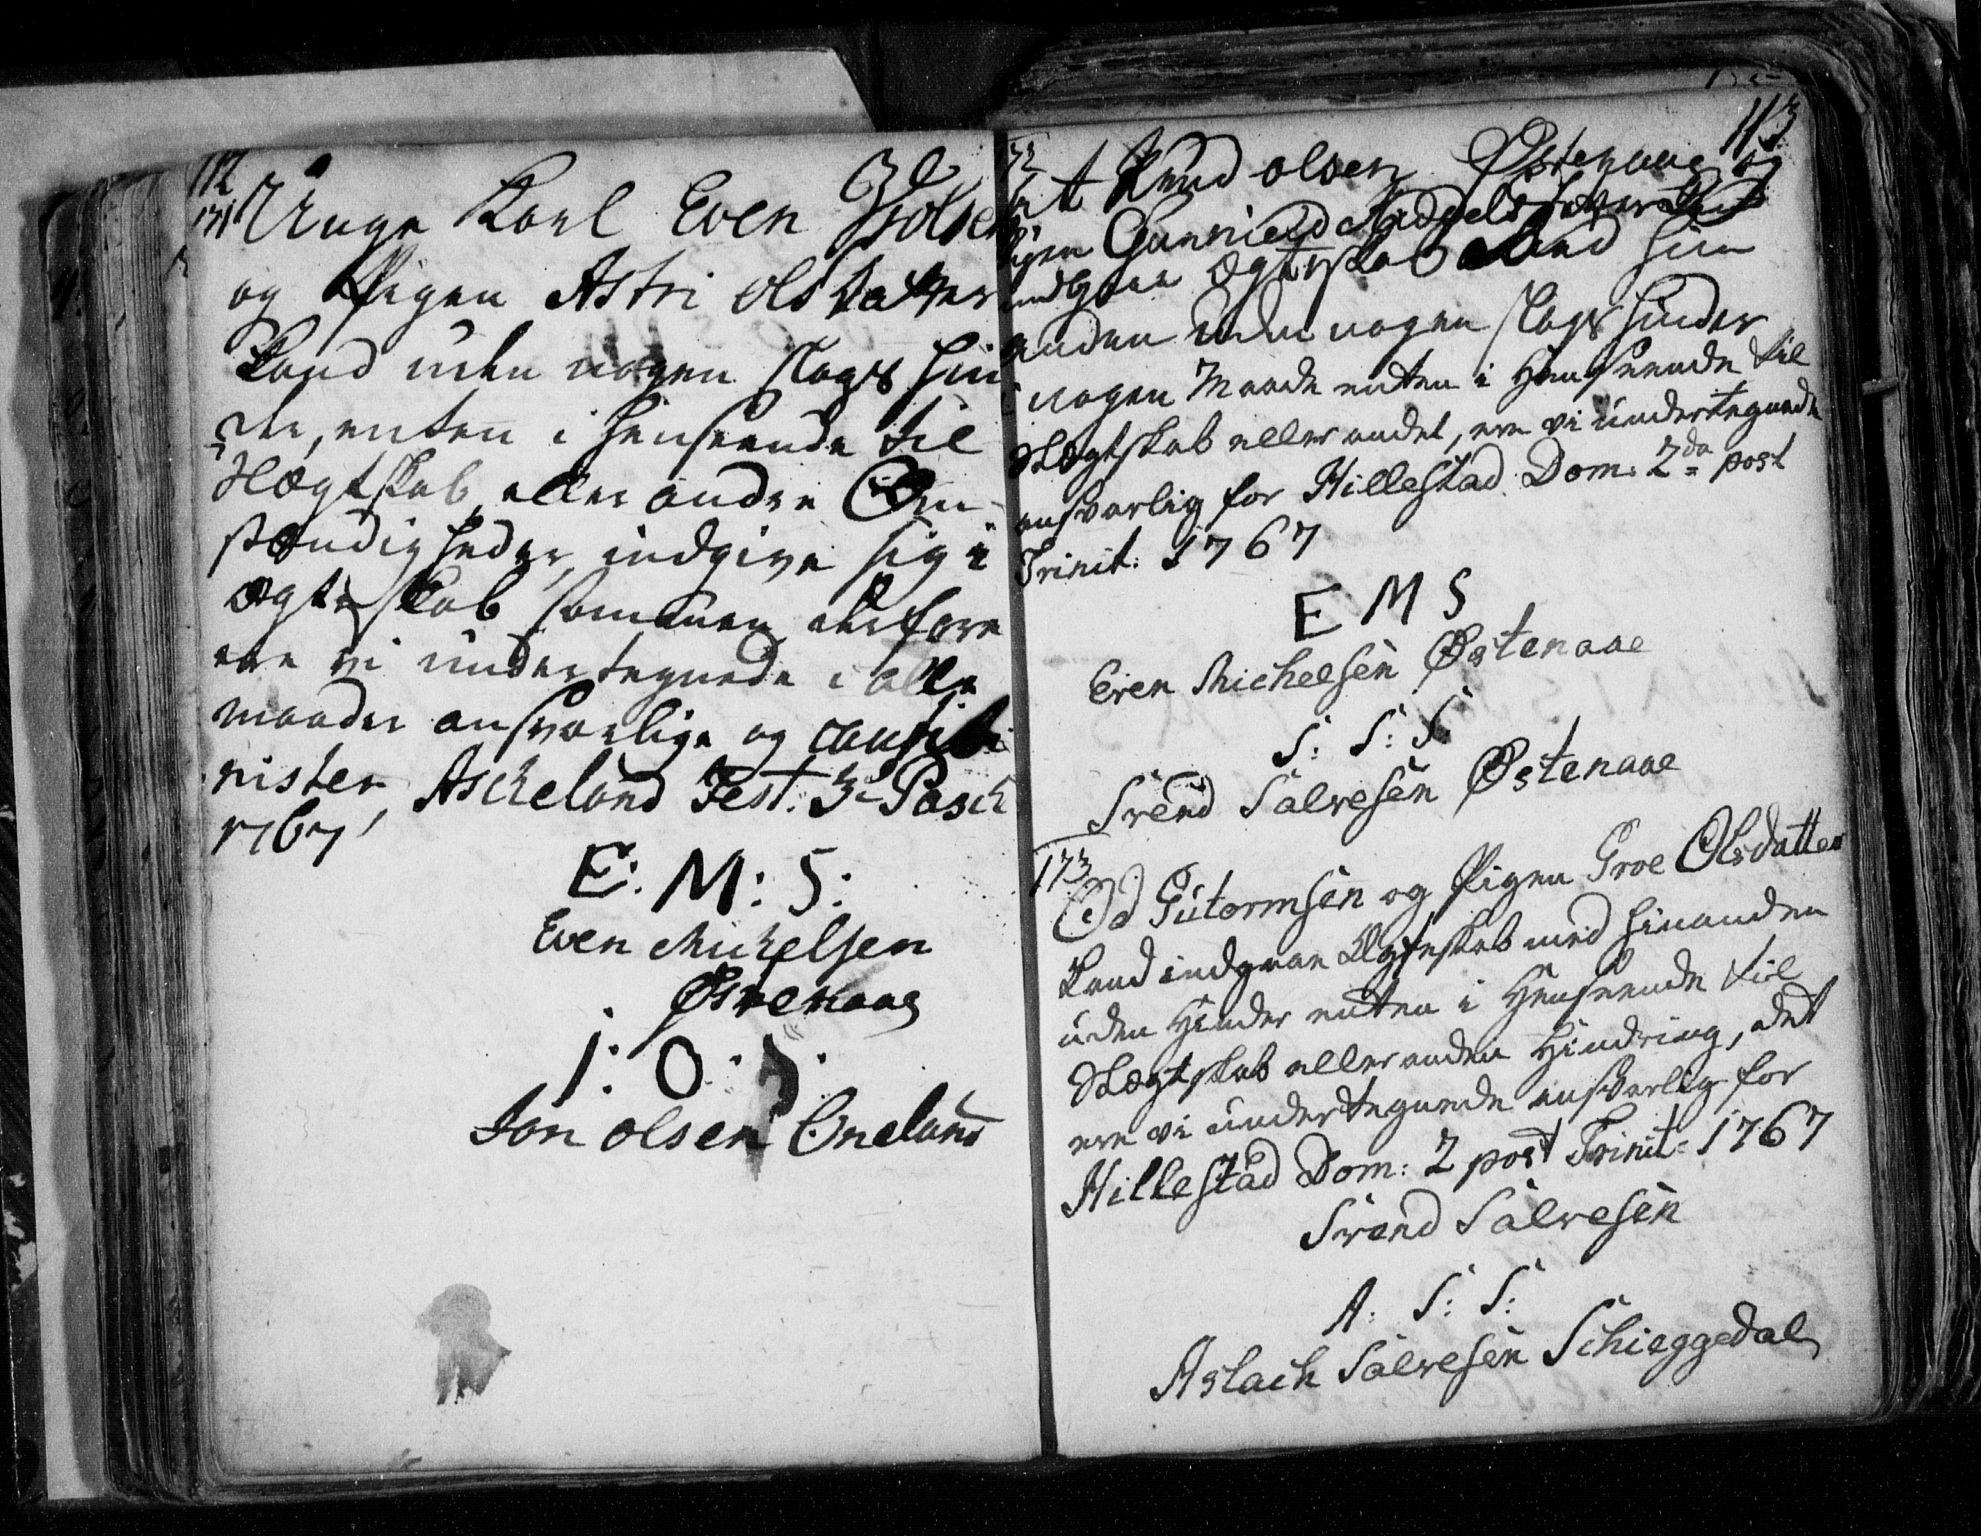 112
171
Unge Karl Even Olsen
og Pigen Astri Olsdatter
kand uden nogen slags hin
der, enten i henseende til
Slægtskab eller andre Om-
stændigheder, indgive sig i
Ægteskab sammen derfore
ere vi undertegnede i alle
maader ansvarlige og
Ascheland Fest. 3. Pasch
1767
E: M: S:
Even Michelsen
Østenaae
J: O: S:
Jon Olsen Oneland
113
172
At Knud Olsen Østenaae og
Pigen Gunnild
indgaae Ægteskab med hin
anden uden nogen slags hinder
i nogen Maade enten i Henseende til
Slægtskab eller andet, ere vi undertegnede
ansvarlig for Hillestad Dom: 2da post
Trinit: 1767
E M S
Even Michelsen Østenaae
S: S: S
Svend Salvesen Østenaae
173
Od Gutormsen og Pigen Groe Olsdatter
kand indgaae Ægteskab med hinanden
uden Hinder enten i Henseende til
Slægtskab eller anden Hindring, det
ere vi undertegnede ansvarlig for
Hillestad Dom: 2 post Trinit: 1767
Svend Salvesen
A: S: S:
Aslach Salvesen Schieggedal